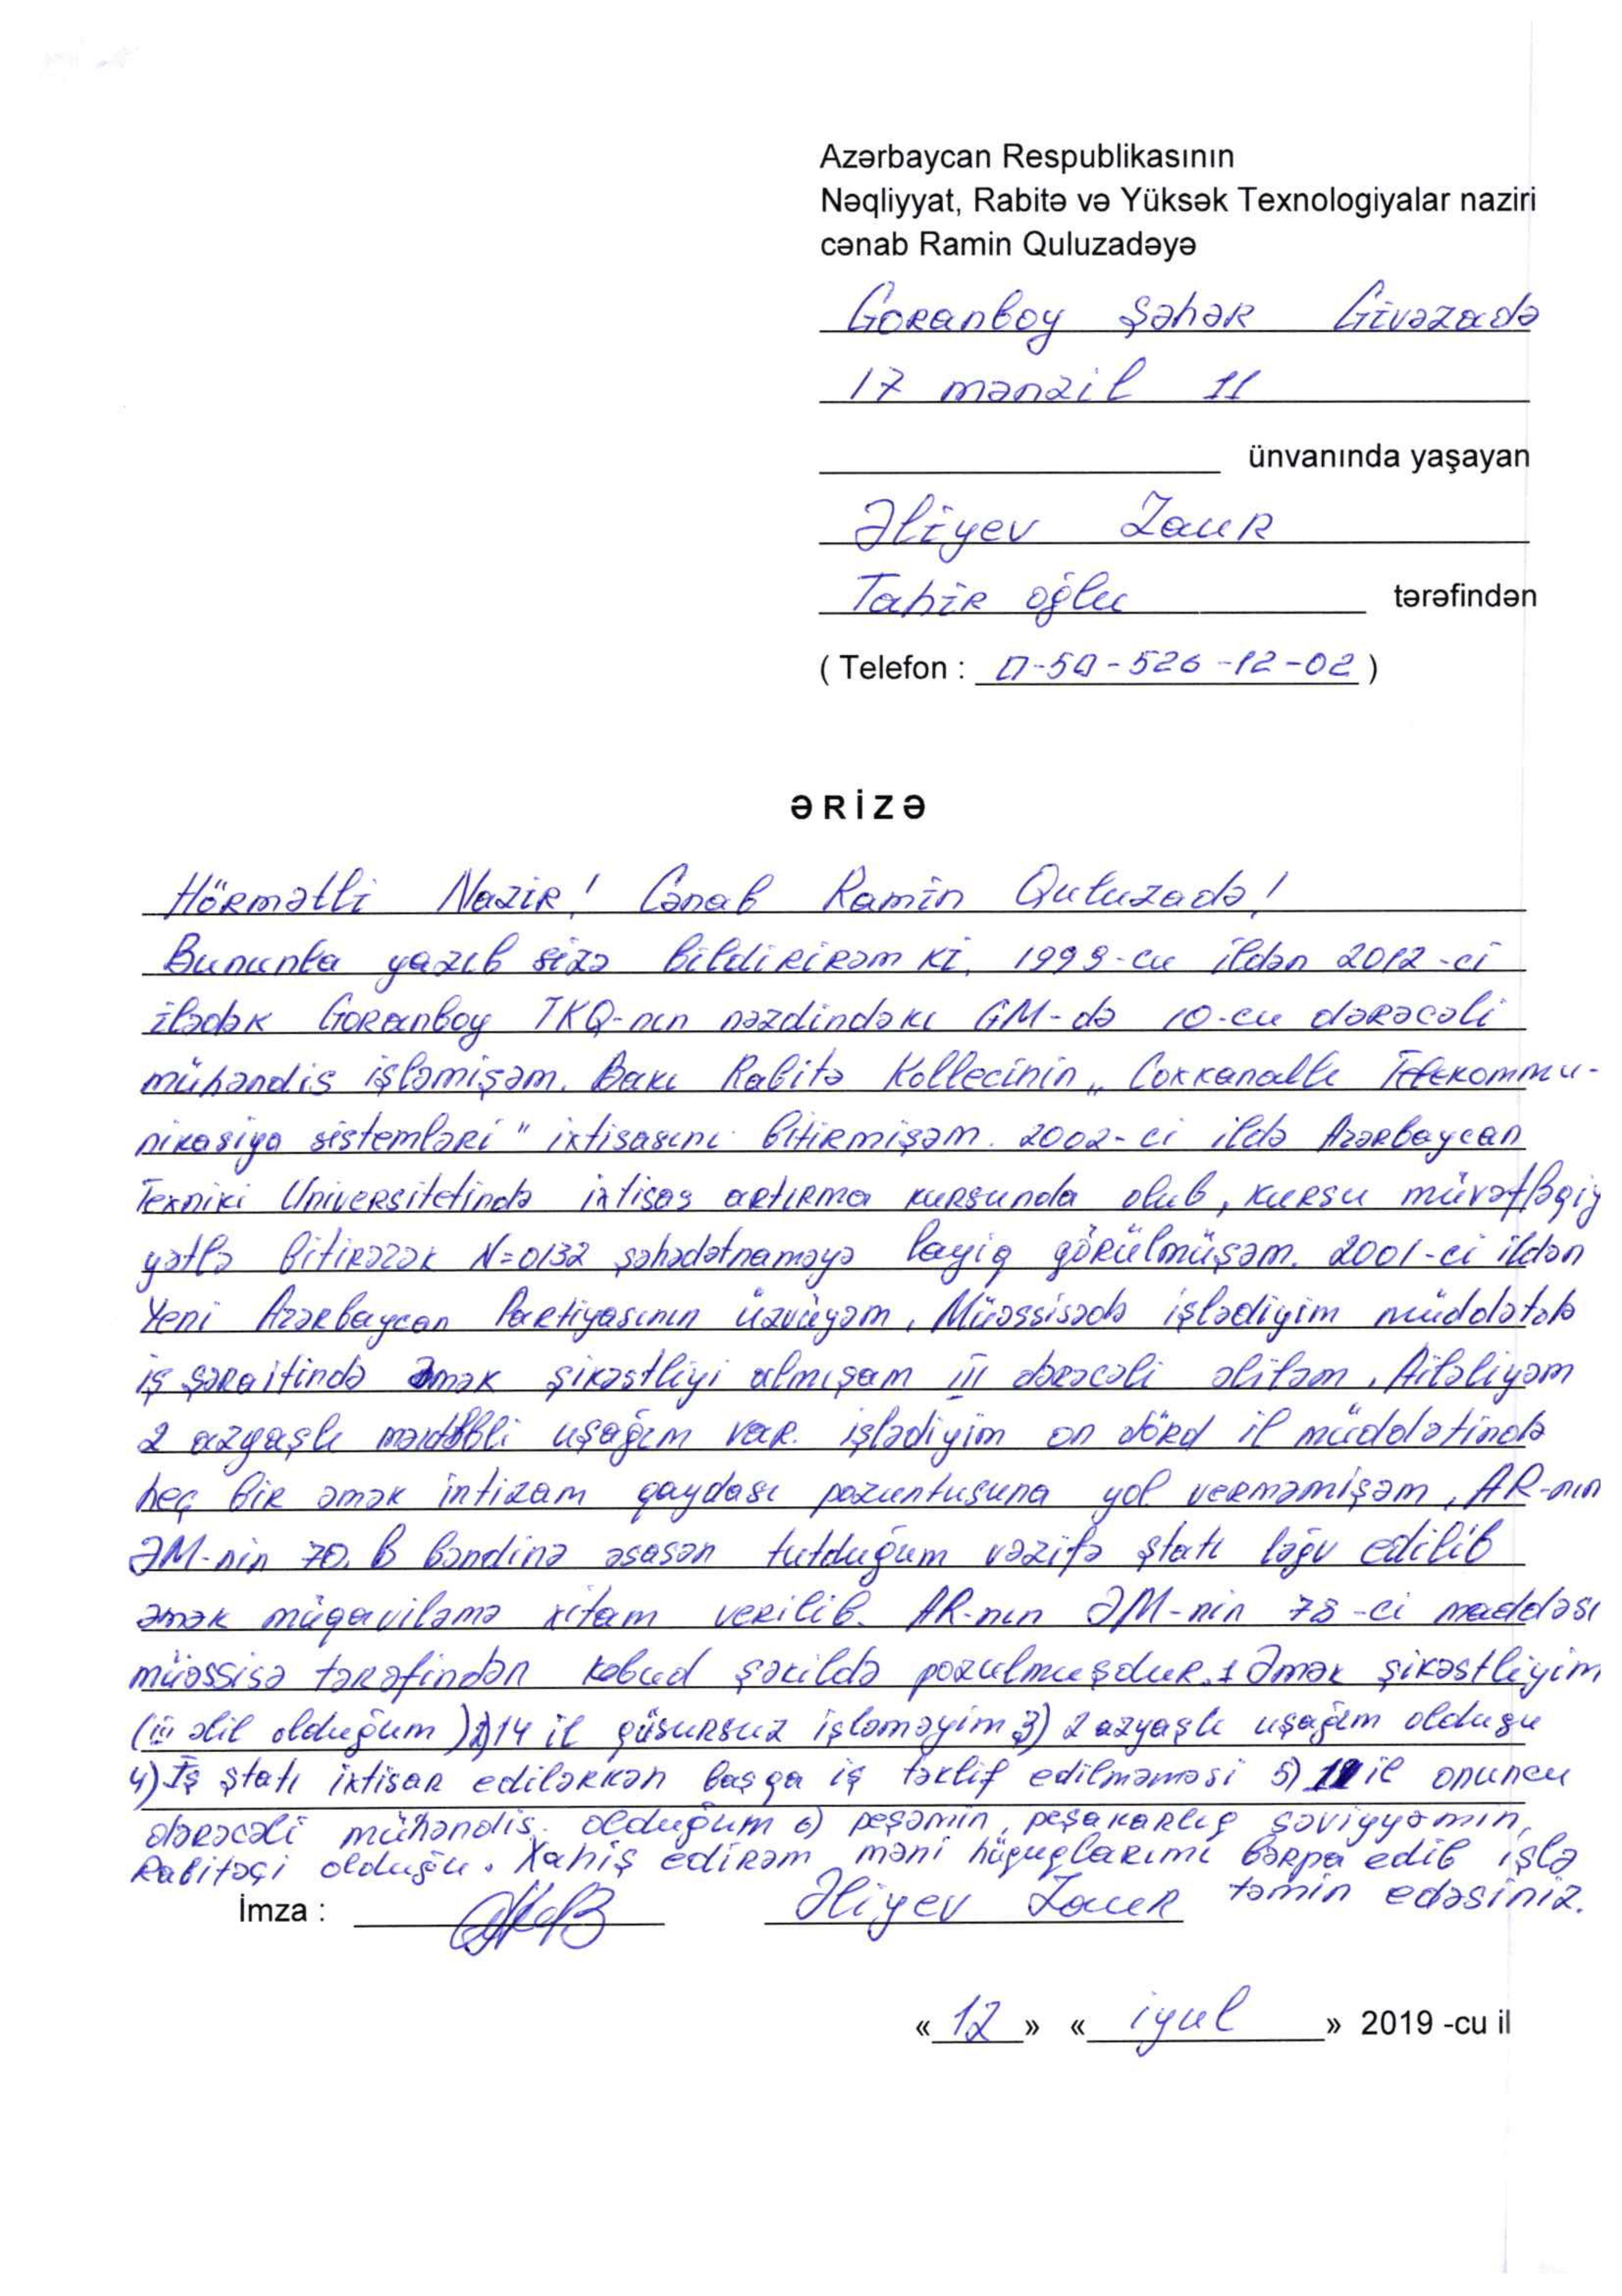 Azərbaycan Respublikasının
Nəqliyyat, Rabitə və Yüksək Texnologiyalar naziri
cənab Ramin Quluzadəyə
Goranboy şəhər Givəzadə
17 mənzil 11
ünvanında yaşayan
Əliyev Zaur
Tahir oğlu tərəfindən
( Telefon : 0-50-526-12-02 )
ƏRİZƏ
Hörmətli Nazir! Cənab Ramin Quluzadə!
Bununla yazıb sizə bildirirəm ki, 1999-cu ildən 2012-ci
ilədək Goranboy TKQ-nın nəzdindəki GM-də 10-cu dərəcəli
mühəndis işləmişəm. Bakı Rabitə Kollecinin „Coxkanallı Telekommu-
nikasiya sistemləri" ixtisasını bitirmişəm. 2002-ci ildə Azərbaycan
Texniki Universitetində ixtisas artırma kursunda olub, kursu müvəffəqiy
yətlə bitirərək N=0132 şəhadətnaməyə layiq görülmüşəm. 2001-ci ildən
Yeni Azərbaycan Partiyasının üzvüyəm, Müəssisədə işlədiyim müddətdə
iş şəraitində Əmək şikəstliyi almışam III dərəcəli əliləm. Ailəliyəm
2 azyaşlı məktəbli uşağım var. işlədiyim on dörd il müddətində
heç bir əmək intizam qaydası pozuntusuna yol verməmişəm, AR-nın
ƏM-nin 70. B bəndinə əsasən tutduğum vəzifə ştatı ləğv edilib
əmək müqaviləmə xitam verilib. AR-nın ƏM-nin 78-ci maddəsi
müəssisə tərəfindən kobud şəkildə pozulmuşdur. 1 Əmək şikəstliyim
(III əlil olduğum) 2) 14 il qüsursuz işləməyim 3) 2 azyaşlı uşağım olduğu
4) İş ştatı ixtisar edilərkən başqa iş təklif edilməməsi 5) il onuncu
dərəcəli mühəndis olduğum 6) peşəmin, peşakarlıq səviyyəmin,
Rabitəçi olduğu. Xahiş edirəm məni hüquqlarımı bərpa edib işlə
təmin edəsiniz.
İmza : Əliyev Zaur
« 12 » « iyul » 2019 -cu il